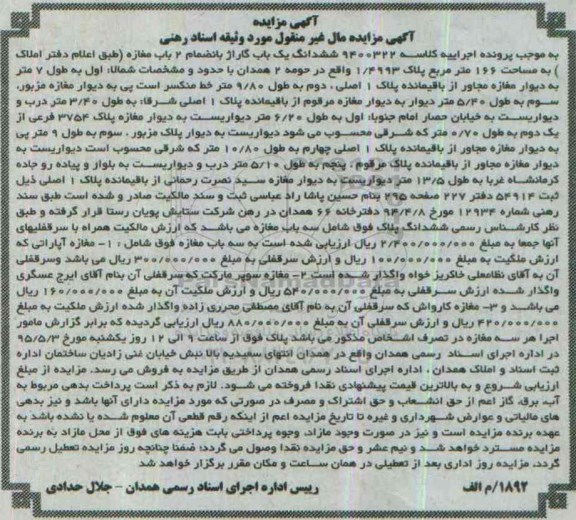 آگهی مزایده
آگهی مزایده مال غیر منقول مورد وثیقه اسناد رهنی
به موجب پرونده اجراییه کلاسه ۹۴۰۰۳۲۲ ششدانگ یک باب گاراژ بانضمام ۲ باب مغازه (طبق اعلام دفتر املاک
) به مساحت ۱۶۶ متر مربع پلاک ۱/۴۹۹۳ واقع در حومه ۲ همدان با حدود و مشخصات شمالا: اول به طول ۷ متر
به دیوار مغازه مجاور از باقیمانده پلاک ۱ اصلی ، دوم به طول ۹/۸۰ متر خط منکسر است پی به دیوار مغازه مزبور.
سوم به طول ۵/۴۰ متر دیوار به دیوار مغازه مرقوم از باقیمانده پلاک ۱ اصلی شرقا: به طول ۳/۴۰ متر درب و
دیواریست به خیابان حصار امام جنوبا: اول به طول ۶/۲۰ متر دیواریست به دیوار مغازه پلاک ۳۷۵۴ فرعی از
یک دوم به طول ۰/۷۰ متر که شرقی محسوب می شود دیواریست به دیوار پلاک مزبور ، سوم به طول ۹ متر پی
به دیوار مغازه مجاور از باقیمانده پلاک ۱ اصلی چهارم به طول ۱۰/۸۰ متر که شرقی محسوب است دیواریست به
دیوار مغازه مجاور از باقیمانده پلاک مرقوم ، پنجم به طول ۵/۱۰ متر درب و دیواریست به بلوار و پیاده رو جاده
کرمانشاه غربا به طول ۱۳/۵ متر دیواریست به دیوار مغازه سید نصرت رحمانی از باقیمانده پلاک ۱ اصلی ذیل
ثبت ۵۴۹۱۴ دفتر ۲۲۷ صفحه ۲۹۵ بنام حسین پاشا راد عباسی ثبت و سند مالکیت صادر و شده است طبق سند
رهنی شماره ۱۲۹۳۴ مورخ ۹۳/۴/۸ دفترخانه ۶۶ همدان در رهن شرکت ستایش پویان رستا قرار گرفته و طبق
نظر کارشناس رسمی ششدانگ پلاک فوق شامل سه باب مغازه می باشد که ارزش مالکیت همراه با سرقفلیهای
آنها جمعا به مبلغ ۲/۴۰۰/۰۰۰/۰۰۰ ریال ارزیابی شده است به سه باب مغازه فوق شامل : ۱- مغازه آپاراتی که
ارزش ملکیت به مبلغ ۱۰۰/۰۰۰/۰۰۰ ریال و ارزش سرقفلی به مبلغ ۳۰۰/۰۰۰/۰۰۰ ریال می باشد وسرقفلی
آن به آقای نظامعلی خاکریز خواه واگذار شده است ۲- مغازه سوپر مارکت که سرقفلی آن بنام آقای ایرج عسگری
واگذار شده ارزش سرقفلی به مبلغ ۵۴۰/۰۰۰/۰۰۰ ریال و ارزش ملکیت آن به مبلغ ۱۶۰/۰۰۰/۰۰۰ ریال
می باشد و ۳- مغازه کارواش که سرقفلی آن به نام آقای مصطفی محرری زاده واگذار شده ارزش ملکیت به مبلغ
۴۲۰/۰۰۰/۰۰۰ ریال و ارزش سرقفلی آن به مبلغ ۸۸۰/۰۰۰/۰۰۰ ریال ارزیابی گردیده که برابر گزارش مامور
اجرا هر سه مغازه در تصرف اشخاص مذکور می باشد پلاک فوق از ساعت ۹ الی ۱۲ روز یکشنبه مورخ ۹۵/۵/۳
در اداره اجرای اسناد رسمی همدان واقع در همدان انتهای سعیدیه بالا نبش خیابان غنی زادیان ساختمان اداره
ثبت اسناد و املاک همدان ، اداره اجرای اسناد رسمی همدان از طریق مزایده به فروش می رسد. مزایده از مبلغ
ارزیابی شروع و به بالاترین قیمت پیشنهادی نقدا فروخته می شود. لازم به ذکر است پرداخت بدهی مربوط به
آب، برق، گاز اعم از حق انشعاب و حق اشتراک و مصرف در صورتی که مورد مزایده دارای آنها باشد و نیز بدهی
های مالیاتی و عوارض شهرداری و غیره تا تاریخ مزایده اعم از اینکه رقم قطعی آن معلوم شده یا نشده باشد به
عهده برنده مزایده است و نیز در صورت وجود مازاد، وجوه پرداختی بابت هزینه های فوق از محل مازاد به برنده
مزایده مسترد خواهد شد و نیم عشر و حق مزایده نقدا وصول می گردد؛ ضمنا چنانچه روز مزایده تعطیل رسمی
گردد، مزایده روز اداری بعد از تعطیلی در همان ساعت و مکان مقرر برگزار خواهد شد
۱۸۹۲/م الف
رییس اداره اجرای اسناد رسمی همدان - جلال حدادی